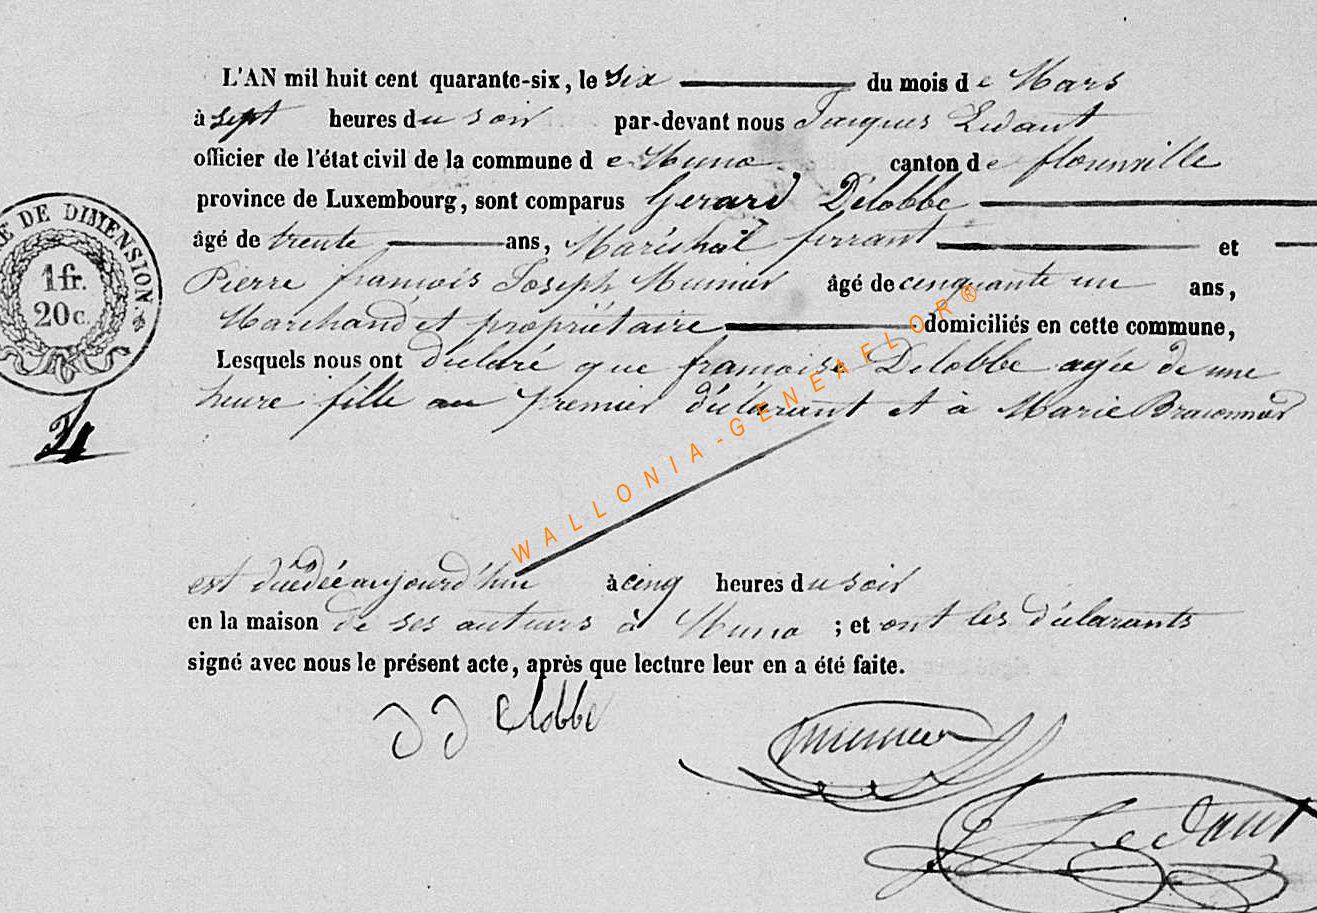 L'AN mil huit cent quarante-six, le six du mois de Mars
à sept heures du soir par-devant nous Jacques Ledant
officier de l'état civil de la commune de Muno canton de florenville
province de Luxembourg, sont comparus Gerard Delobbe
âgé de trente ans, Maréchal ferrant et
Pierre francois Joseph Munier âgé de cinquante un ans,
Marchand et propriétaire domiciliés en cette commune,
Lesquels nous ont déclaré que francoise Delobbe agée de une
heure fille au premier déclarant et à Marie Braconnier
est décédée aujourd'hui à cinq heures du soir
en la maison de ses auteurs à Muno ; et ont les déclarants
signé avec nous le présent acte, après que lecture leur en a été faite.
Delobbe
munier
Ledant
DE DIMENSION.
1 fr.
20 c.
WALLONIA-GENEAFLOR®